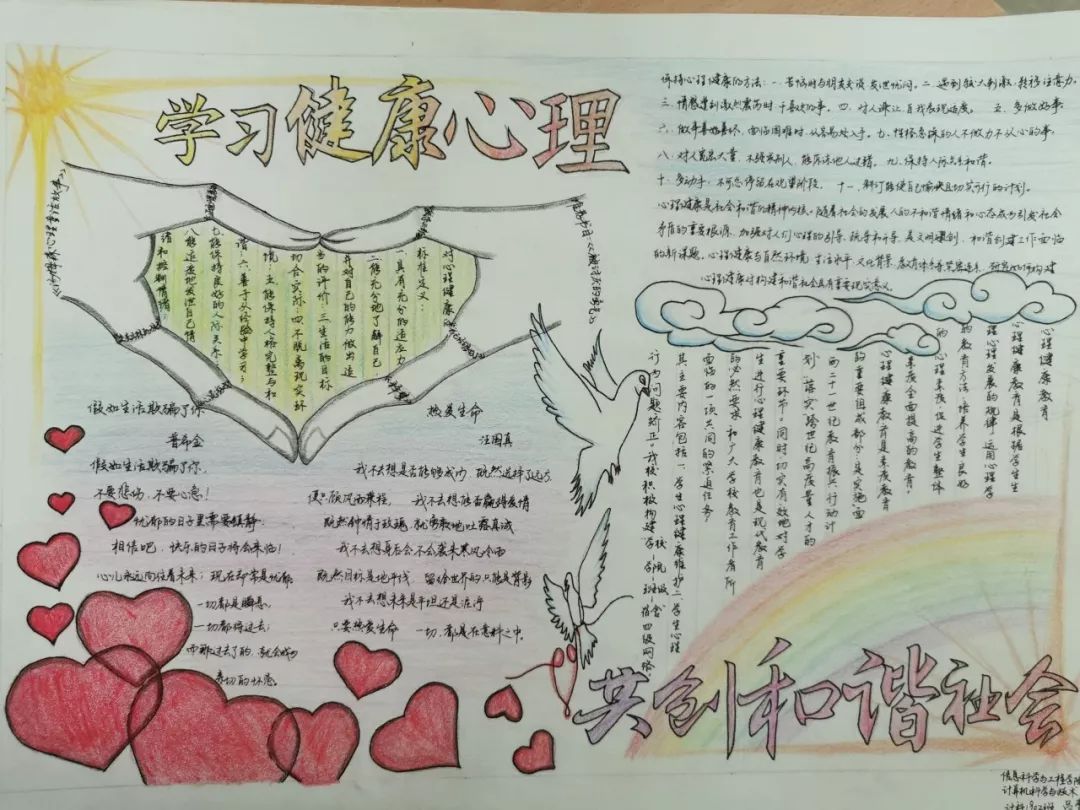 学习健康心理
保持心理健康的方法：一.苦恼时与朋友交谈,发泄忧闷。二.遇到较大刺激,转移注意力。
三.情感受刺激烈震荡时
四.对人谦让,自我表现适度。 五.多做好事
六.做事善始善终,面临困难时,从容易处入手。九.性格急躁的人不做力不从心的事。
八.对人宽宏大量,不强求别人,能原谅他人过错。九.保持人际关系和谐。
十.多动手,不可总停留在观望阶段。 十一.制订能使自己愉快且切实可行的计划。
心理健康是社会和谐的精神内核。随着社会的发展人的不和谐情绪和心态成为引发社会
矛盾的重要根源,加强对人们心理的引导
和谐创建工作面临
的新课题。心理健康与自然环境,生活水平,文化背景,教育体系等紧密连系
心理健康对构建和谐社会具有重要现实意义。
对心理健康的
标准定义：
一具有充分的适应力
二能充分地了解自己
并对自己的能力做出适
当的评价；三生活的目标
切合实际；四不脱离现实环
境；五能保持人格完整与和
谐；六善于从经验中学习；
七能保持良好的人际关系
八能适度地发泄自己情
绪和控制情绪。
假如生活欺骗了你
普希金
假如生活欺骗了你,
不要悲伤,不要心急!
忧郁的日子里需要镇静.
相信吧,快乐的日子将会来临!
心儿永远向往着未来;现在却常是忧郁
一切都是瞬息,
一切都将过去;
而那过去了的,就会成为
亲切的怀恋。
热爱生命
汪国真
我不去想是否能够成功,既然选择了远方
便只顾风雨兼程。 我不去想能否赢得爱情
既然钟情于玫瑰,就勇敢地吐露真诚
我不去想身后会不会袭来寒风冷雨
既然目标是地平线,留给世界的只能是背影
我不去想未来是平坦还是泥泞
只要热爱生命 一切,都是在意料之中。
心理健康教育
心理健康教育是根据学生生
理心理发展的规律,运用心理学
的教育方法,培养学生良好
的心理素质,促进学生整体
素质全面提高的教育。
心理健康教育是素质教育
的重要组成部分,是实施"面
向二十一世纪教育振兴行动计
划",落实"跨世纪高质量人才的
重要环节。同时切实有效地对学
生进行心理健康教育也是现代教育
的必然要求,和广大学校教育工作者所
面临的一项共同的紧迫任务。
其主要内容包括:一、学生心理健康维护二、学生心理
行为问题矫正。我校积极构建"学校-学院-班级-宿舍"四级网络
共创和谐社会
信息科学与工程学院
计算机科学与技术